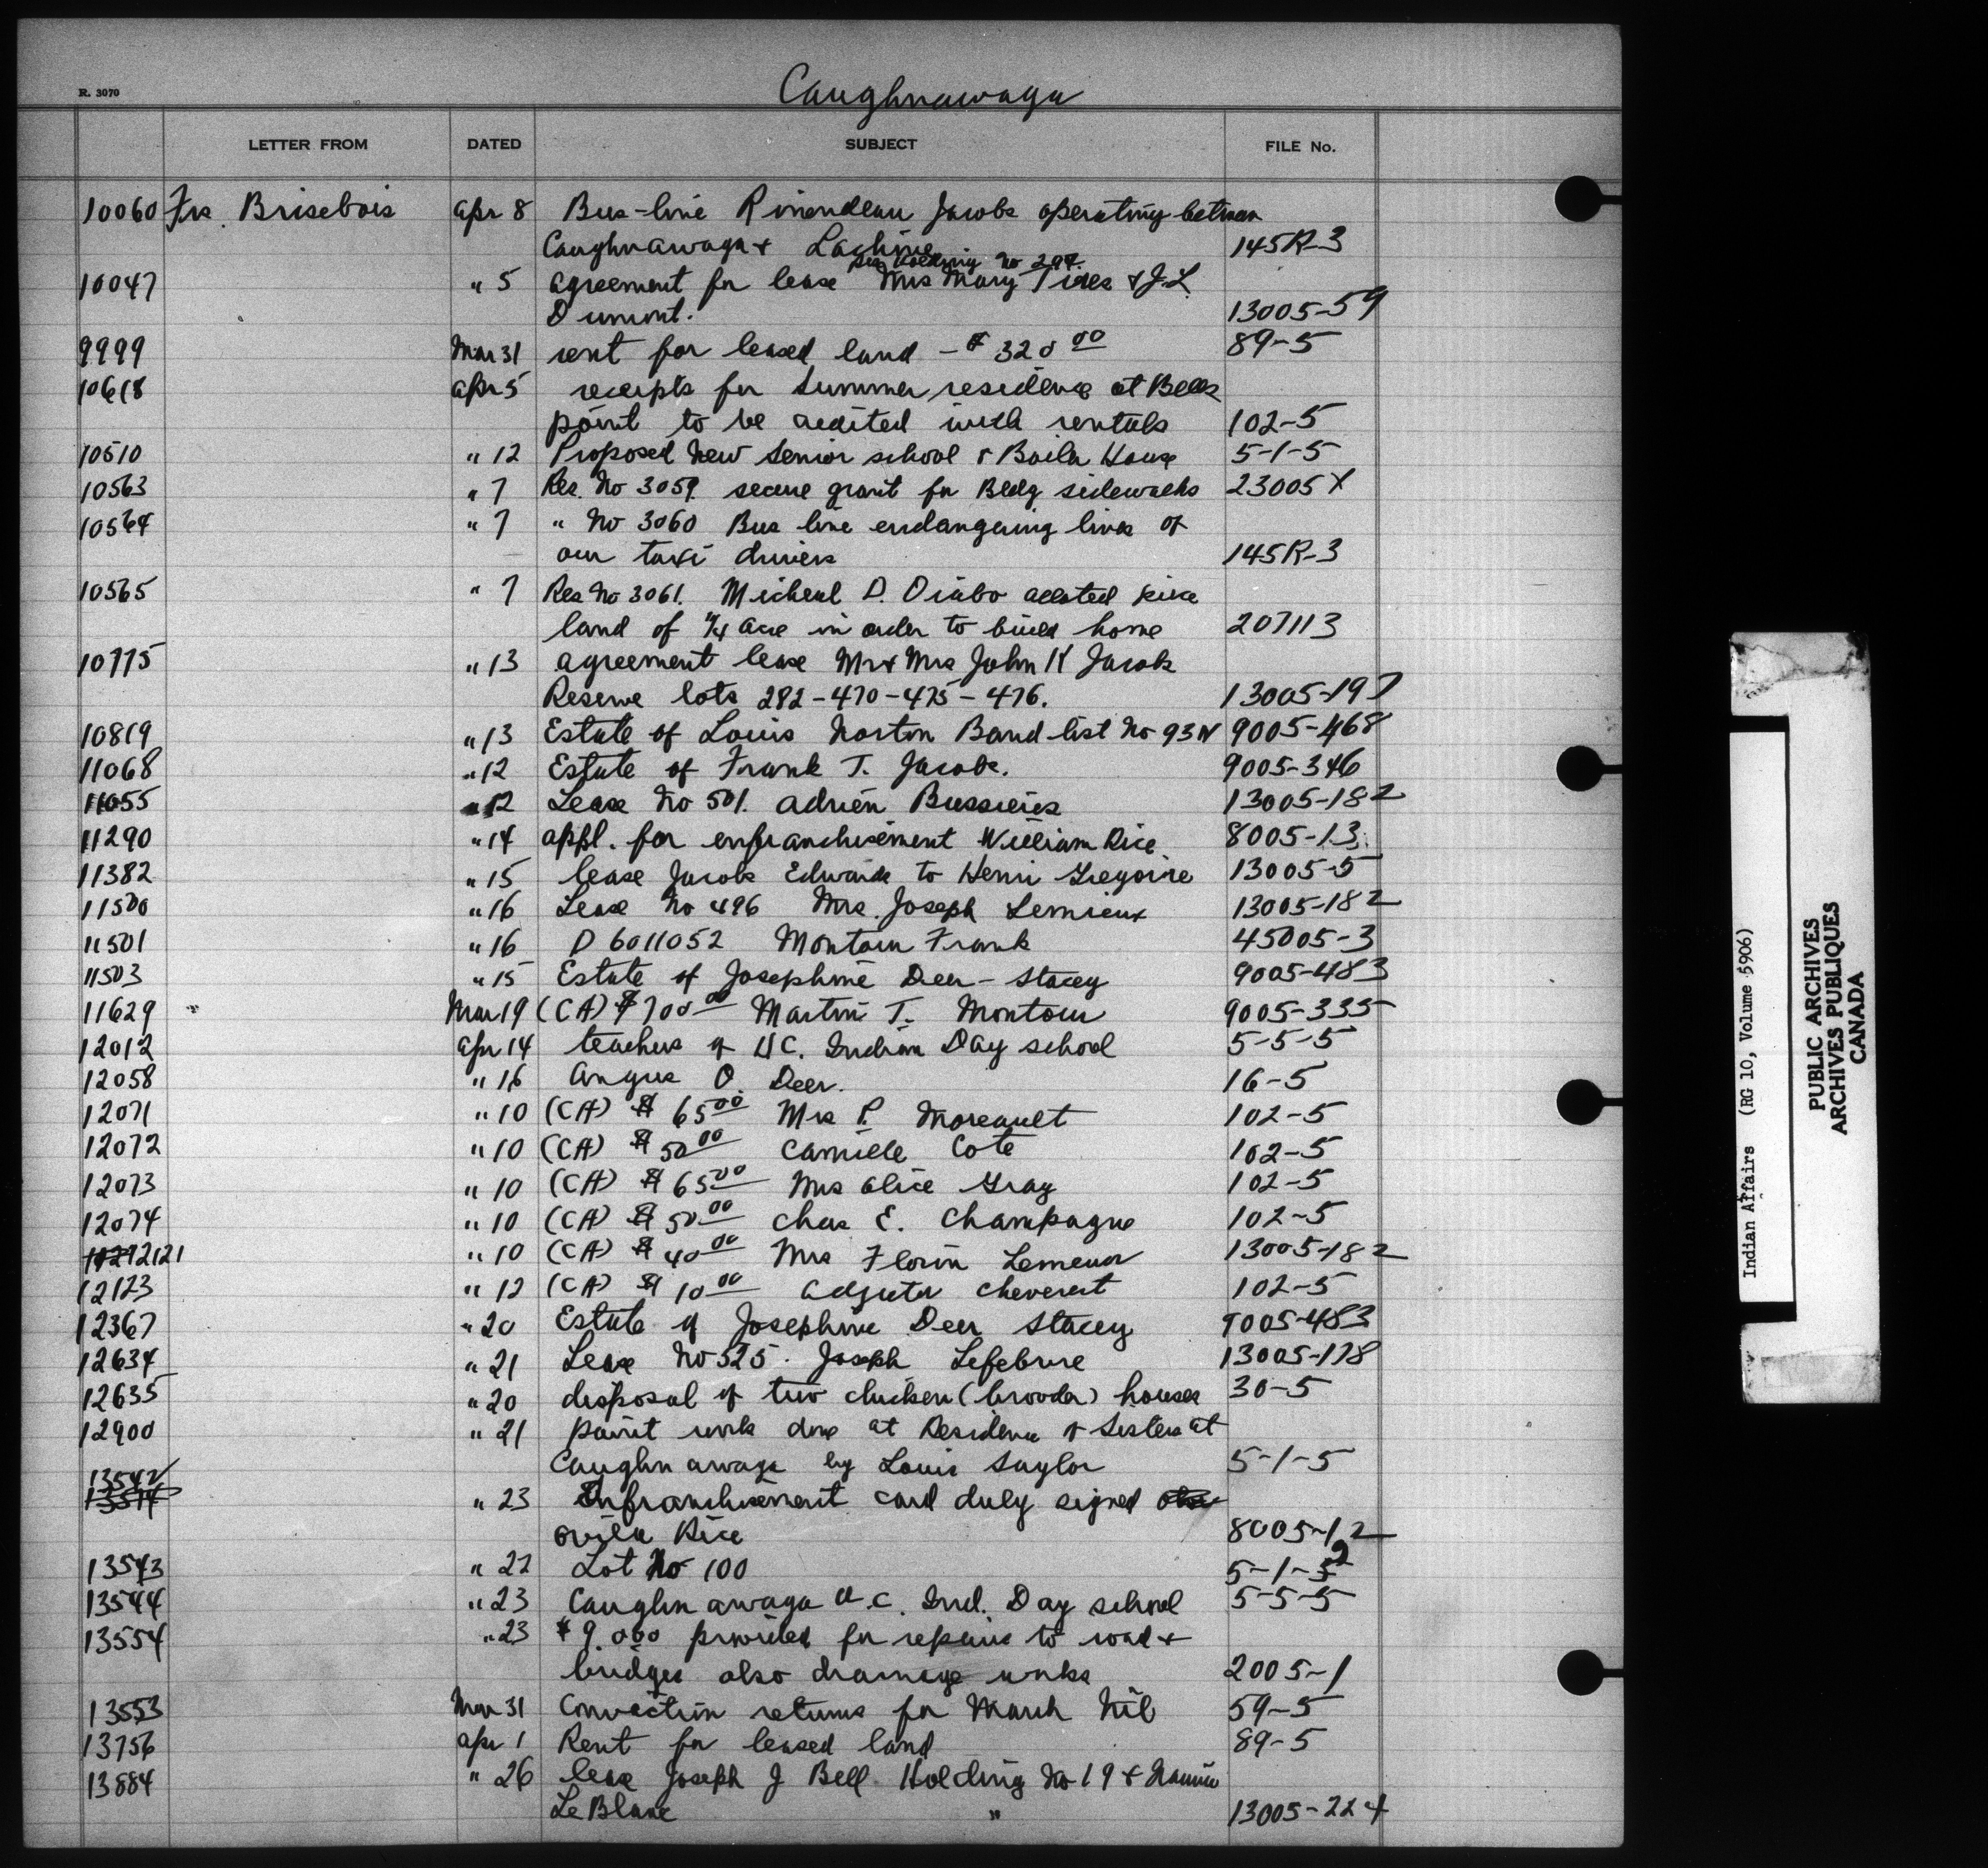 Caughnawaga
R. 3070
LETTER FROM DATED SUBJECT FILE No.
10060 Frs. Brisebois Apr 8 Bus-line Jacobs operating between
Caughnawaga & Lachine 145R-3
Holding No 297.
10047 " 5 Agreement for lease Mrs Mary & J.L.
Dumont. 13005-59
9999 Mar 31 rent for leased land - $ 320 00 89-5
10618 Apr 5 receipts for summer residence at Bells
point to be credited with rentals 102-5
10510 " 12 Proposed New Senior school & Boiler House 5-1-5
10563 " 7 Res. No 3059. secure grant for Bldg sidewalks 23005X
10564 " 7 " No 3060 Bus line endangering lives of
our taxi drivers 145R-3
10565 " 7 Res No 3061. Micheal D. Diabo
land of 1/4 acre in order to build home 207113
10775 " 13 agreement lease Mr & Mrs John K Jacobs
Reserve lots 282-470-475-476. 13005-197
10819 " 13 Estate of Louis Norton Band list No 93N 9005-468
11068 " 12 Estate of Frank T. Jacobs. 9005-346
11055 " 12 Lease No 501. Adrien Bussieres 13005-182
11290 " 14 appl. for enfranchisement William Rice 8005-13
11382 " 15 lease Jacobs Edwards to Henri Gregoire 13005-5
11500 " 16 Lease No 496 Mrs. Joseph Lemieux 13005-182
11501 " 16 D 6011052 Montour Frank 45005-3
11503 " 15 Estate of Josephine Deer-Stacey 9005-483
11629 Mar 19 (CA) $ 700 00 Martin T. Montour 9005-335
12012 Apr 14 teachers of Indian Day school 5-5-5
12058 " 16 Angus O. Deer. 16-5
12071 " 10 (CA) $ 65 00 Mrs P. Moreault 102-5
12072 " 10 (CA) $ 50 00 Camille Cote 102-5
12073 " 10 (CA) $ 65 00 Mrs Alice Gray 102-5
12074 " 10 (CA) $ 50 00 Chas E. Champagne 102-5
12121 " 10 (CA) $ 40 00 Mrs 13005-182
12123 " 12 (CA) $ 10 00 102-5
12367 " 20 Estate of Josephine Deer Stacey 9005-483
12634 " 21 Lease No 525. Joseph Lefebvre 13005-178
12635 " 20 disposal of two chicken (brooder) houses 30-5
12900 " 21 paint work done at Residence of Sisters at
Caughnawaga by Louis Saylor 5-1-5
13542
13514 " 23 Enfranchisement card duly signed
Ovila Rice 8005-12
13543 " 22 Lot No 100 5-1-5 2
13544 " 23 Caughnawaga R.C. Ind. Day school 5-5-5
13554 " 23 $9.000 provided for repairs to road &
bridges also drainage works 2005-1
13553 Mar 31 Conviction returns for March Nil 59-5
13756 Apr 1 Rent for leased land 89-5
13884 " 26 lease Joseph J Bell Holding No 19 &
LeBlanc " 13005-224
Indian Affairs (RG 10, Volume 5906)
PUBLIC ARCHIVES
ARCHIVES PUBLIQUES
CANADA